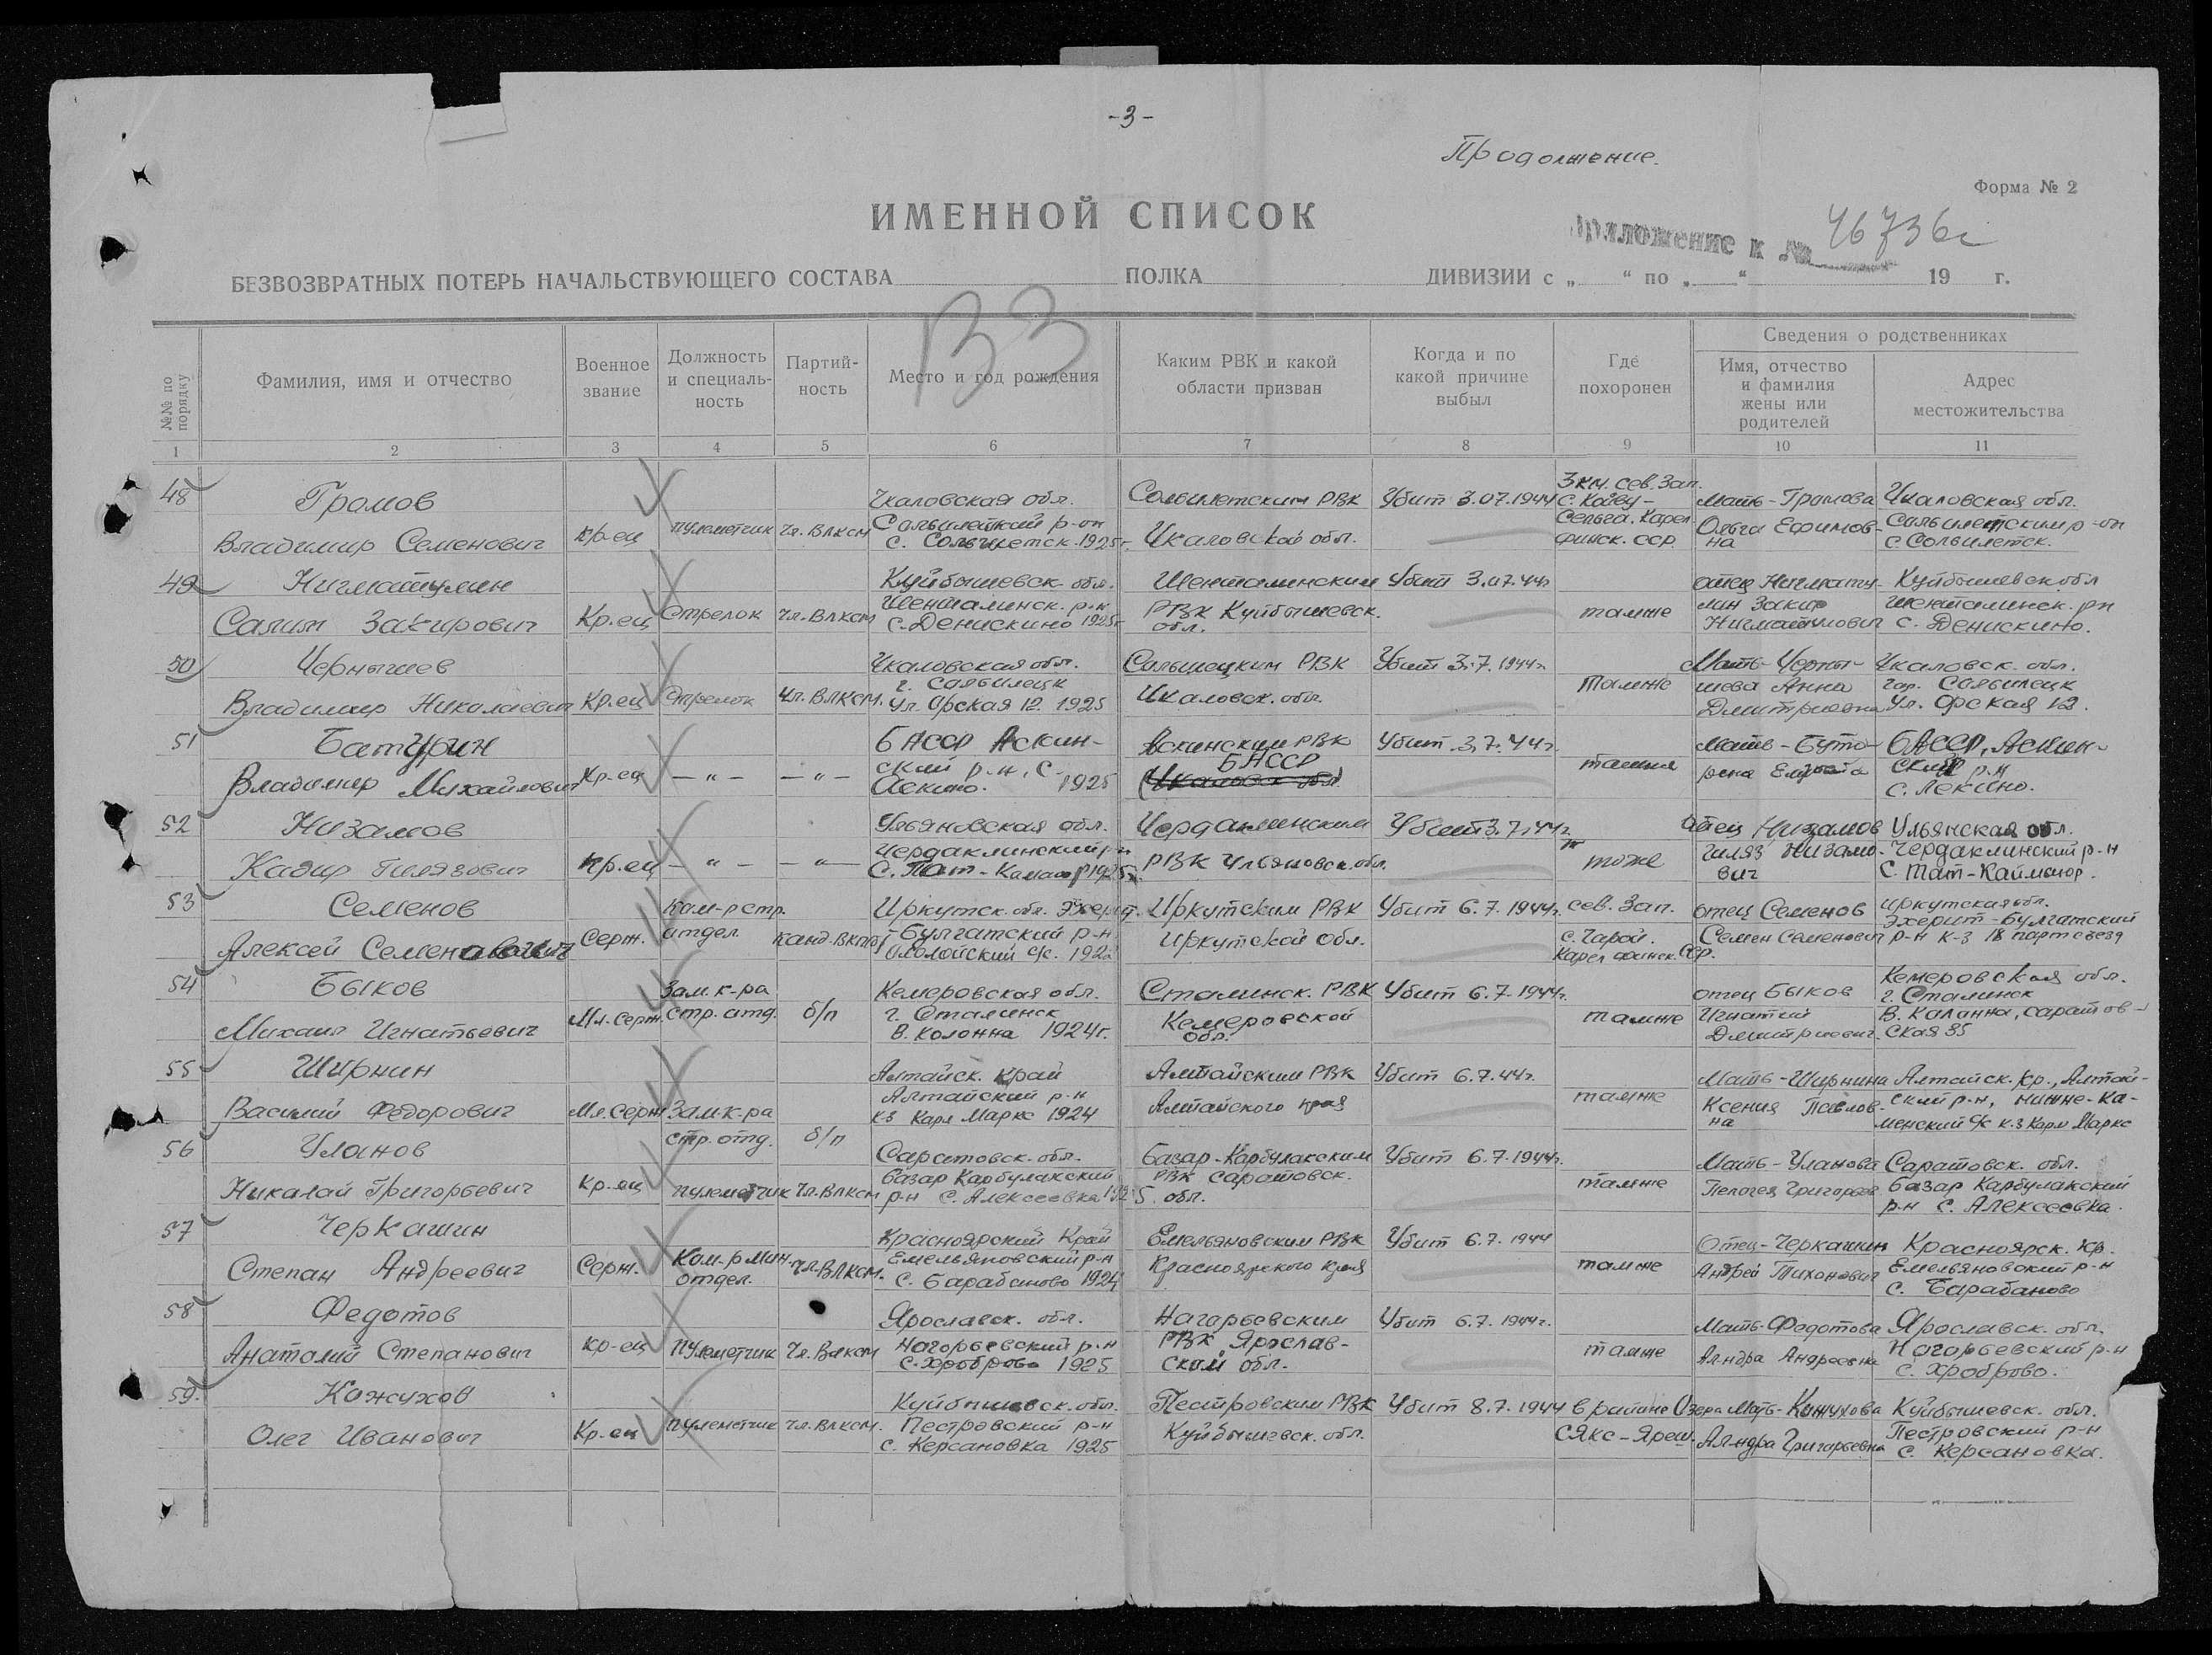 -3-
Продолжение.
Форма № 2
ИМЕННОЙ СПИСОК
приложение к № 46736с
БЕЗВОЗВРАТНЫХ ПОТЕРЬ НАЧАЛЬСТВУЮЩЕГО СОСТАВА ПОЛКА ДИВИЗИИ с „ “ по „ “ 19 г.
В3
№№ по порядку
Фамилия, имя и отчество
Военное звание
Должность и специаль-ность
Партий-ность
Место и год рождения
Каким РВК и какой области призван
Когда и по какой причине выбыл
Где похоронен
Сведения о родственниках
Имя, отчество и фамилия жены или родителей
Адрес местожительства
1 2 3 4 5 6 7 8 9 10 11
48 Громов Чкаловская обл. Сольилетским РВК Убит 3.07.1944 3 км. сев. зап. с. Койву- Мать-Громова Чкаловская обл.
Владимир Семенович Кр-ец пулеметчик Чл. ВЛКСМ Сольилецкий р-он с. Сольилетск. 1925г. Чкаловской обл. Сельга. Карел. финск. сср. Ольга Ефимов-на Сольилетским р-он с. Сольилетск.
49 Нигматулин Куйбышевск. обл. Шенталинским Убит 3.07.44г. отец Нигмату- Куйбышевск обл
Салим Закирович Кр.ец Стрелок Чл. ВЛКСМ Шенталинск. р-н с. Денискино 1925г РВК Куйбышевск. обл. тамже лин Закир Нигматулович Шенталинск. рн с. Денискино.
50 Чернышев Чкаловская обл. Сольилецким РВК Убит 3.7.1944г. Мать-Черны- Чкаловск. обл.
Владимир Николаевич Кр.ец Стрелок Чл. ВЛКСМ. г. Сольилецк ул. Орская 12. 1925 Чкаловск. обл. Тамже шева Анна Дмитриевна гор. Сольилецк ул. Орская 12.
51 Батурин БАССР Аскин- Аскинским РВК Убит 3.7.44г. Мать-Бату- БАССР, Аскин-
Владимир Михайлович Кр.ец —"— —"— ский р-н, с. 1925 БАССР тамже рина ский р-н с. Лекино.
52 Низамов Ульяновская обл. Чердаклинским Убит 3.7.44г. Отец Низамов Ульянская обл.
Кадир Гилязович Кр.ец —"— —"— Чердаклинский р-н с. Тат- РВК Ульяновск. обл. тоже Гиляз Низамо-вич Чердаклинский р-н с. Тат-Каймаюр.
53 Семенов Ком-р стр. Иркутск. обл. Эхерит- Иркутским РВК Убит 6.7.1944г. сев. зап. отец Семенов Иркутская обл.
Алексей Семенович Серж. отдел. канд. ВКП(б) Булгатский р-н Ололойский с/с. 192 Иркутской обл. с. Чарой. Карел финск. сср. Семен Семенович Эхерит-Булгатский р-н к-з 18 партсъезд
54 Быков Зам. к-ра Кемеровская обл. Сталинск. РВК Убит 6.7.1944г. отец Быков Кемеровская обл.
Михаил Игнатьевич Мл. Серж. Стр. отд. б/п г. Сталинск В. Колонна 1924г. Кемеровской обл. тамже Игнатий Дмитриевич г. Сталинск В. Колонна, саратов-ская 35
55 Ширнин Алтайск. Край Алтайским РВК Убит 6.7.44г. Мать-Ширнина Алтайск. кр., Алтай-
Василий Федорович Мл. Серж Зам. к-ра стр. отд. б/п Алтайский р-н к-з Карл Маркс 1924 Алтайского края тамже Ксения Павлов-на ский р-н, нижне-ка-менский с/с к-з Карл Маркс
56 Уланов Саратовск. обл. Базар-Карбулакским Убит 6.7.1944г. Мать-Уланова Саратовск. обл.
Николай Григорьевич Кр-ец пулеметчик Чл. ВЛКСМ Базар Карбулакский р-н с. Алексеевка 1925. РВК Саратовск. обл. тамже Пелогея Григорьев Базар Карбулакский р-н с. Алексеевка.
57 Черкашин Красноярский Край Емельяновским РВК Убит 6.7.1944 Отец-Черкашин Красноярск. кр.
Степан Андреевич Серж. Ком-р мин. отдел. Чл. ВЛКСМ. Емельяновский р-н с. Барабаново 1924 Красноярского края тамже Андрей Тихонович Емельяновский р-н с. Барабаново
58 Федотов Ярославск. обл. Нагорьевским Убит 6.7.1944г. Мать-Федотова Ярославск. обл.
Анатолий Степанович Кр-ец пулеметчик Чл. Влксм Нагорьевский р-н с. Хроброво 1925 РВК Ярослав-ской обл. тамже Ал-ндра Андреевна Нагорьевский р-н с. Хроброво.
59. Кожухов Куйбышевск. обл. Пестровским РВК Убит 8.7.1944 в районе Озера Мать-Кожухова Куйбышевск. обл.
Олег Иванович Кр-ец пулеметчик чл. ВЛКСМ. Пестровский р-н с. Керсановка 1925 Куйбышевск. обл. СЯКС-Яреш. Ал-ндра Григорьевна Пестровский р-н с. Керсановка.